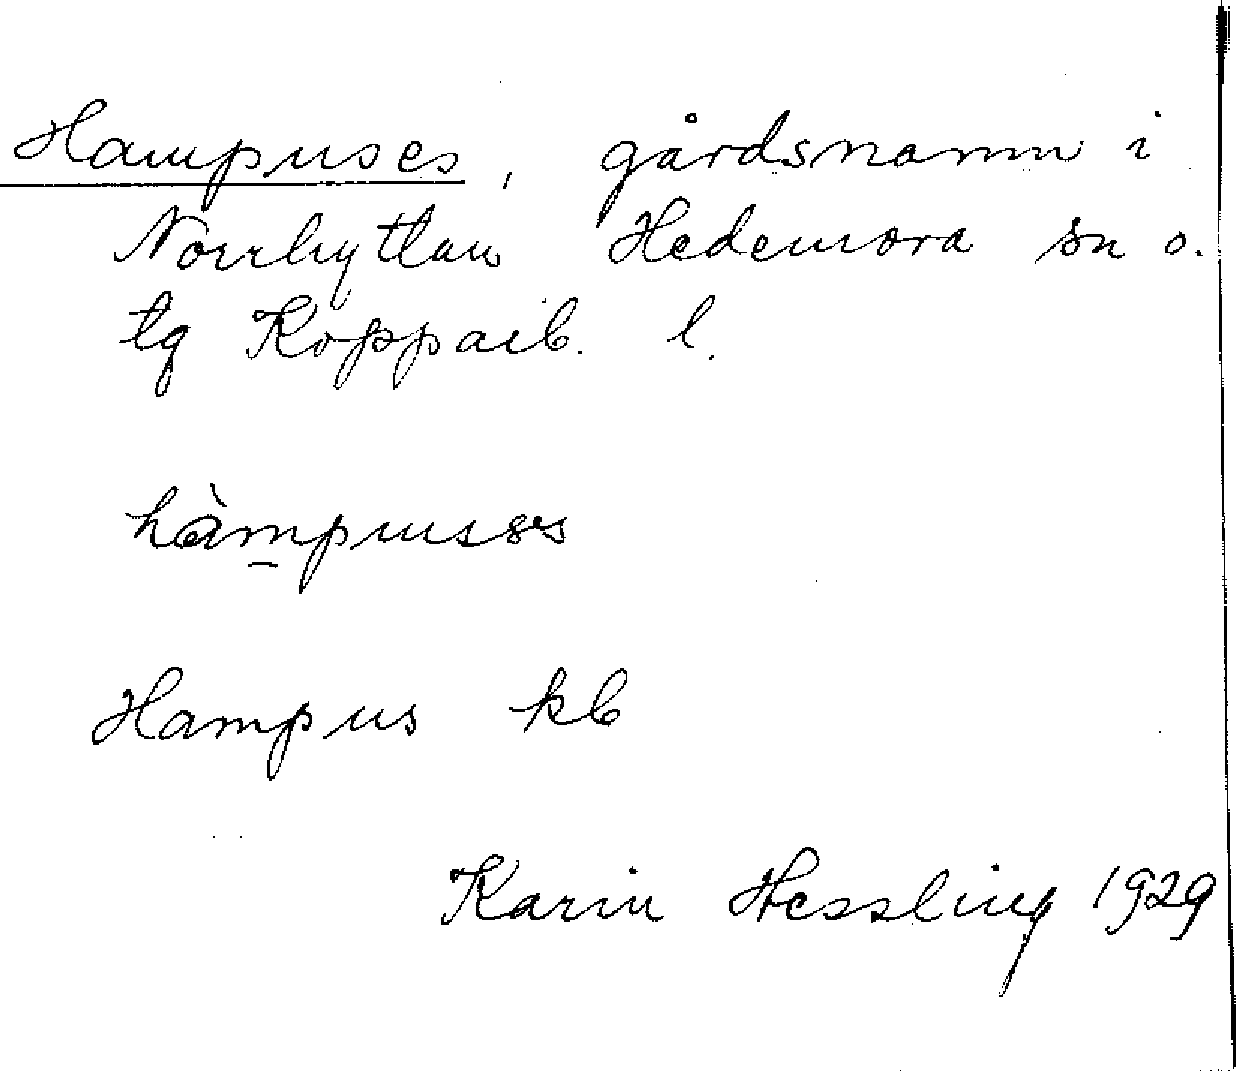 Hampuses, gårdsnamn i
Norrhyttan Hedemora sn o.
tg Kopparb. l.
hàmpuses
Hampus kb
Karin Hessling 1929